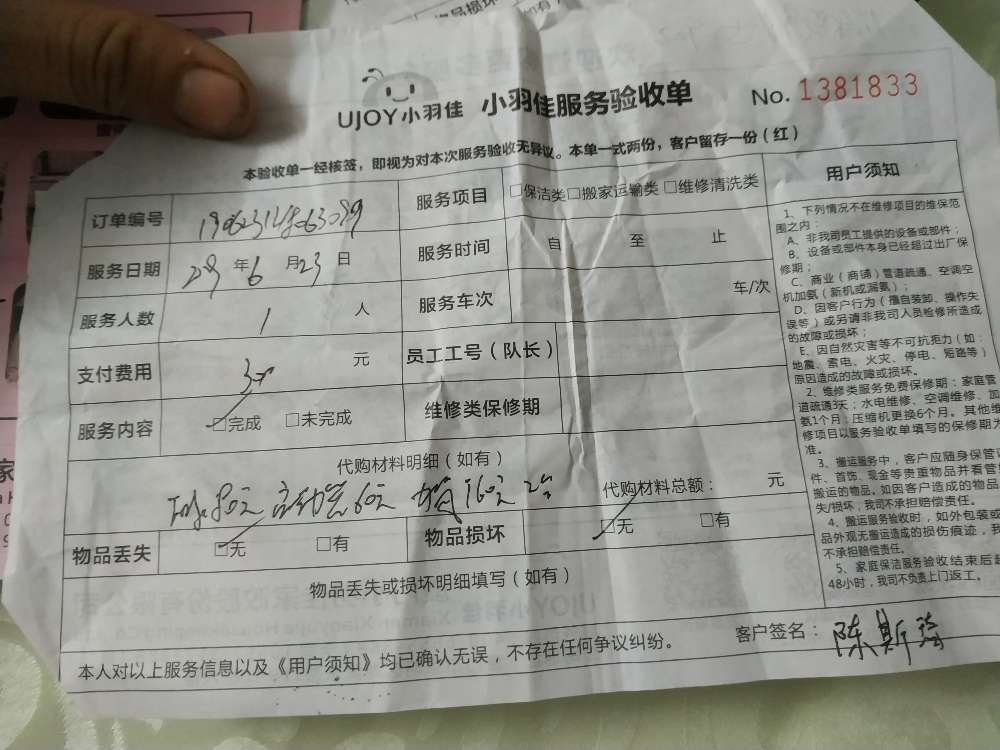 物品损坏
UJOY小羽佳 小羽佳服务验收单 No. 1381833
本验收单一经核签，即视为对本次服务验收无异议。本单一式两份，客户留存一份（红）
订单编号
服务项目 □保洁类□搬家运输类□维修清洗类
服务日期 年 6 月 23 日
服务时间 自 至 止
服务人数 1 人
服务车次 车/次
支付费用 元
员工工号（队长）
服务内容 □完成 □未完成
维修类保修期
代购材料明细（如有）
80元 启动器60元 160元
代购材料总额： 元
物品丢失 □无 □有
物品损坏 □无 □有
物品丢失或损坏明细填写（如有）
本人对以上服务信息以及《用户须知》均已确认无误，不存在任何争议纠纷。
客户签名： 陈斯
用户须知
1、下列情况不在维修项目的维保范
围之内：
A、非我司员工提供的设备或部件；
B、设备或部件本身已经超过出厂保
修期；
C、商业（商铺）管道疏通、空调空
机加氨（新机或漏氨）；
D、因客户行为（擅自装卸、操作失
误等）或另请非我司人员检修所造成
的故障或损坏；
E、因自然灾害等不可抗拒力（如：
地震、雷电、火灾、停电、短路等）
原因造成的故障或损坏。
2、维修类服务免费保修期：家庭管
道疏通3天；水电维修、空调维修、加
氨1个月；压缩机更换6个月。其他维
修项目以服务验收单填写的保修期为
准。
3、搬运服务中，客户应随身保管证
件、首饰、现金等贵重物品并看管
搬运的物品。如因客户造成的物品
失/损坏，我司不承担赔偿责任。
4、搬运服务验收时，如外包装或
品外观无搬运造成的损伤痕迹，我
不承担赔偿责任。
5、家庭保洁服务验收结束后超
48小时，我司不负责上门返工。